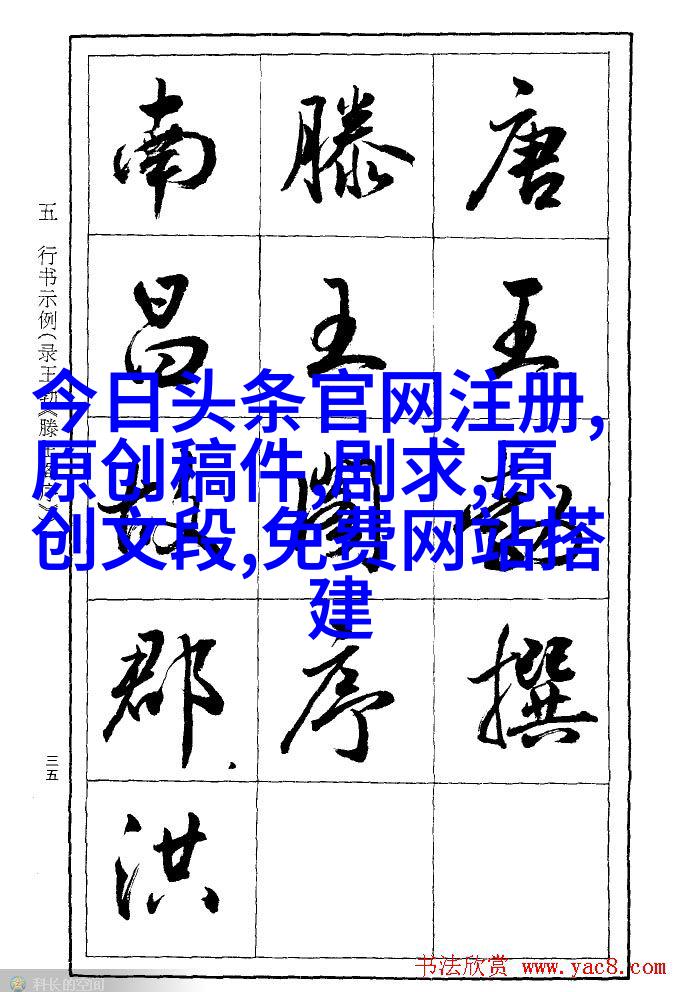 唐王勃撰
滕王阁序
南昌故郡.洪
五 行书示例(录王勃《滕王阁序》)
三五
今日头条官网注册,
原创稿件,剧求,原
创文段,免费网站搭
建
书法欣赏 www.yac8.com
科长的空间